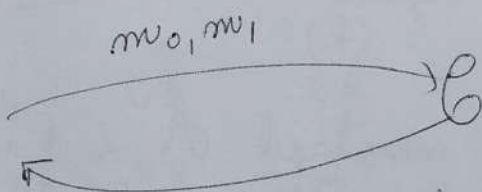 m₀, m₁
C